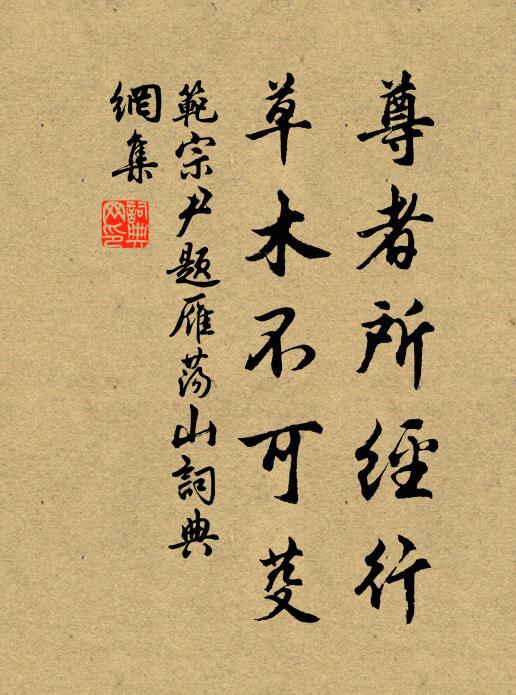 尊者所經行
草木不可芟
範宗尹題雁荡山詞典
網集
詞典
网印